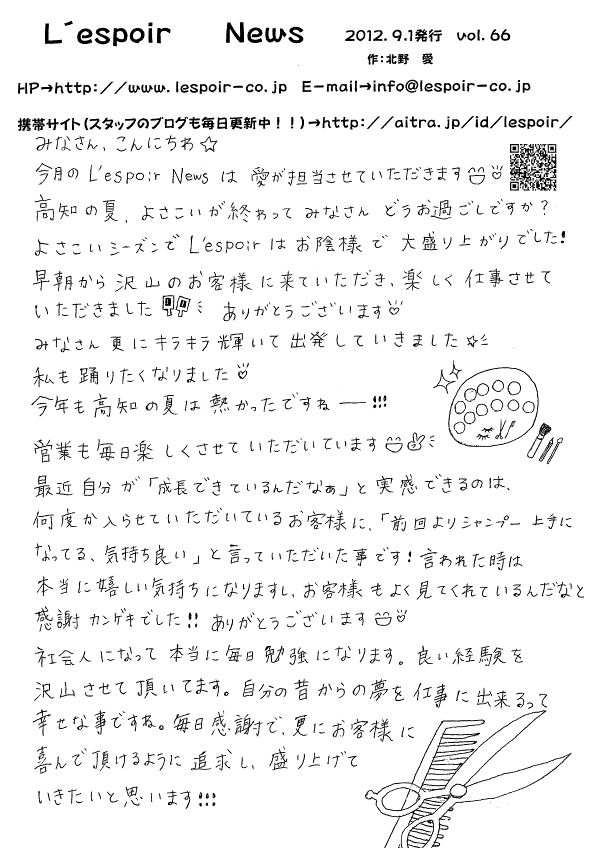 L´espoir News 2012.9.1発行 vol.66
作:北野 愛
HP→http://www.lespoir-co.jp E-mail→info@lespoir-co.jp
携帯サイト(スタッフのブログも毎日更新中!!)→http://aitra.jp/id/lespoir/
みなさん、こんにちわ☆
今月の L'espoir News は 愛が担当させていただきます
高知の夏、よさこいが終わって みなさん どうお過ごしですか?
よさこいシーズンで L'espoir は お陰様で 大盛り上がりでした!
早朝から 沢山のお客様に来ていただき、楽しく 仕事させて
いただきました ありがとうございます
みなさん 更に キラキラ 輝いて 出発していきました☆
私も 踊りたくなりました
今年も 高知の夏は 熱かったですねー!!!
営業も毎日楽しくさせていただいています
最近 自分が「成長できているんだなぁ」と 実感できるのは、
何度か入らせていただいているお客様に、「前回よりシャンプー 上手に
なってる、気持ち良い」と言っていただいた事です!言われた時は
本当に嬉しい気持ちになりますし、お客様もよく見てくれているんだなと
感謝 カンゲキでした!! ありがとうございます
社会人になって 本当に毎日 勉強になります。良い経験を
沢山させて頂いてます。自分の昔からの夢を仕事に出来るって
幸せな事ですね。毎日感謝で、更にお客様に
喜んで頂けるように 追求し、盛り上げて
いきたいと思います!!!